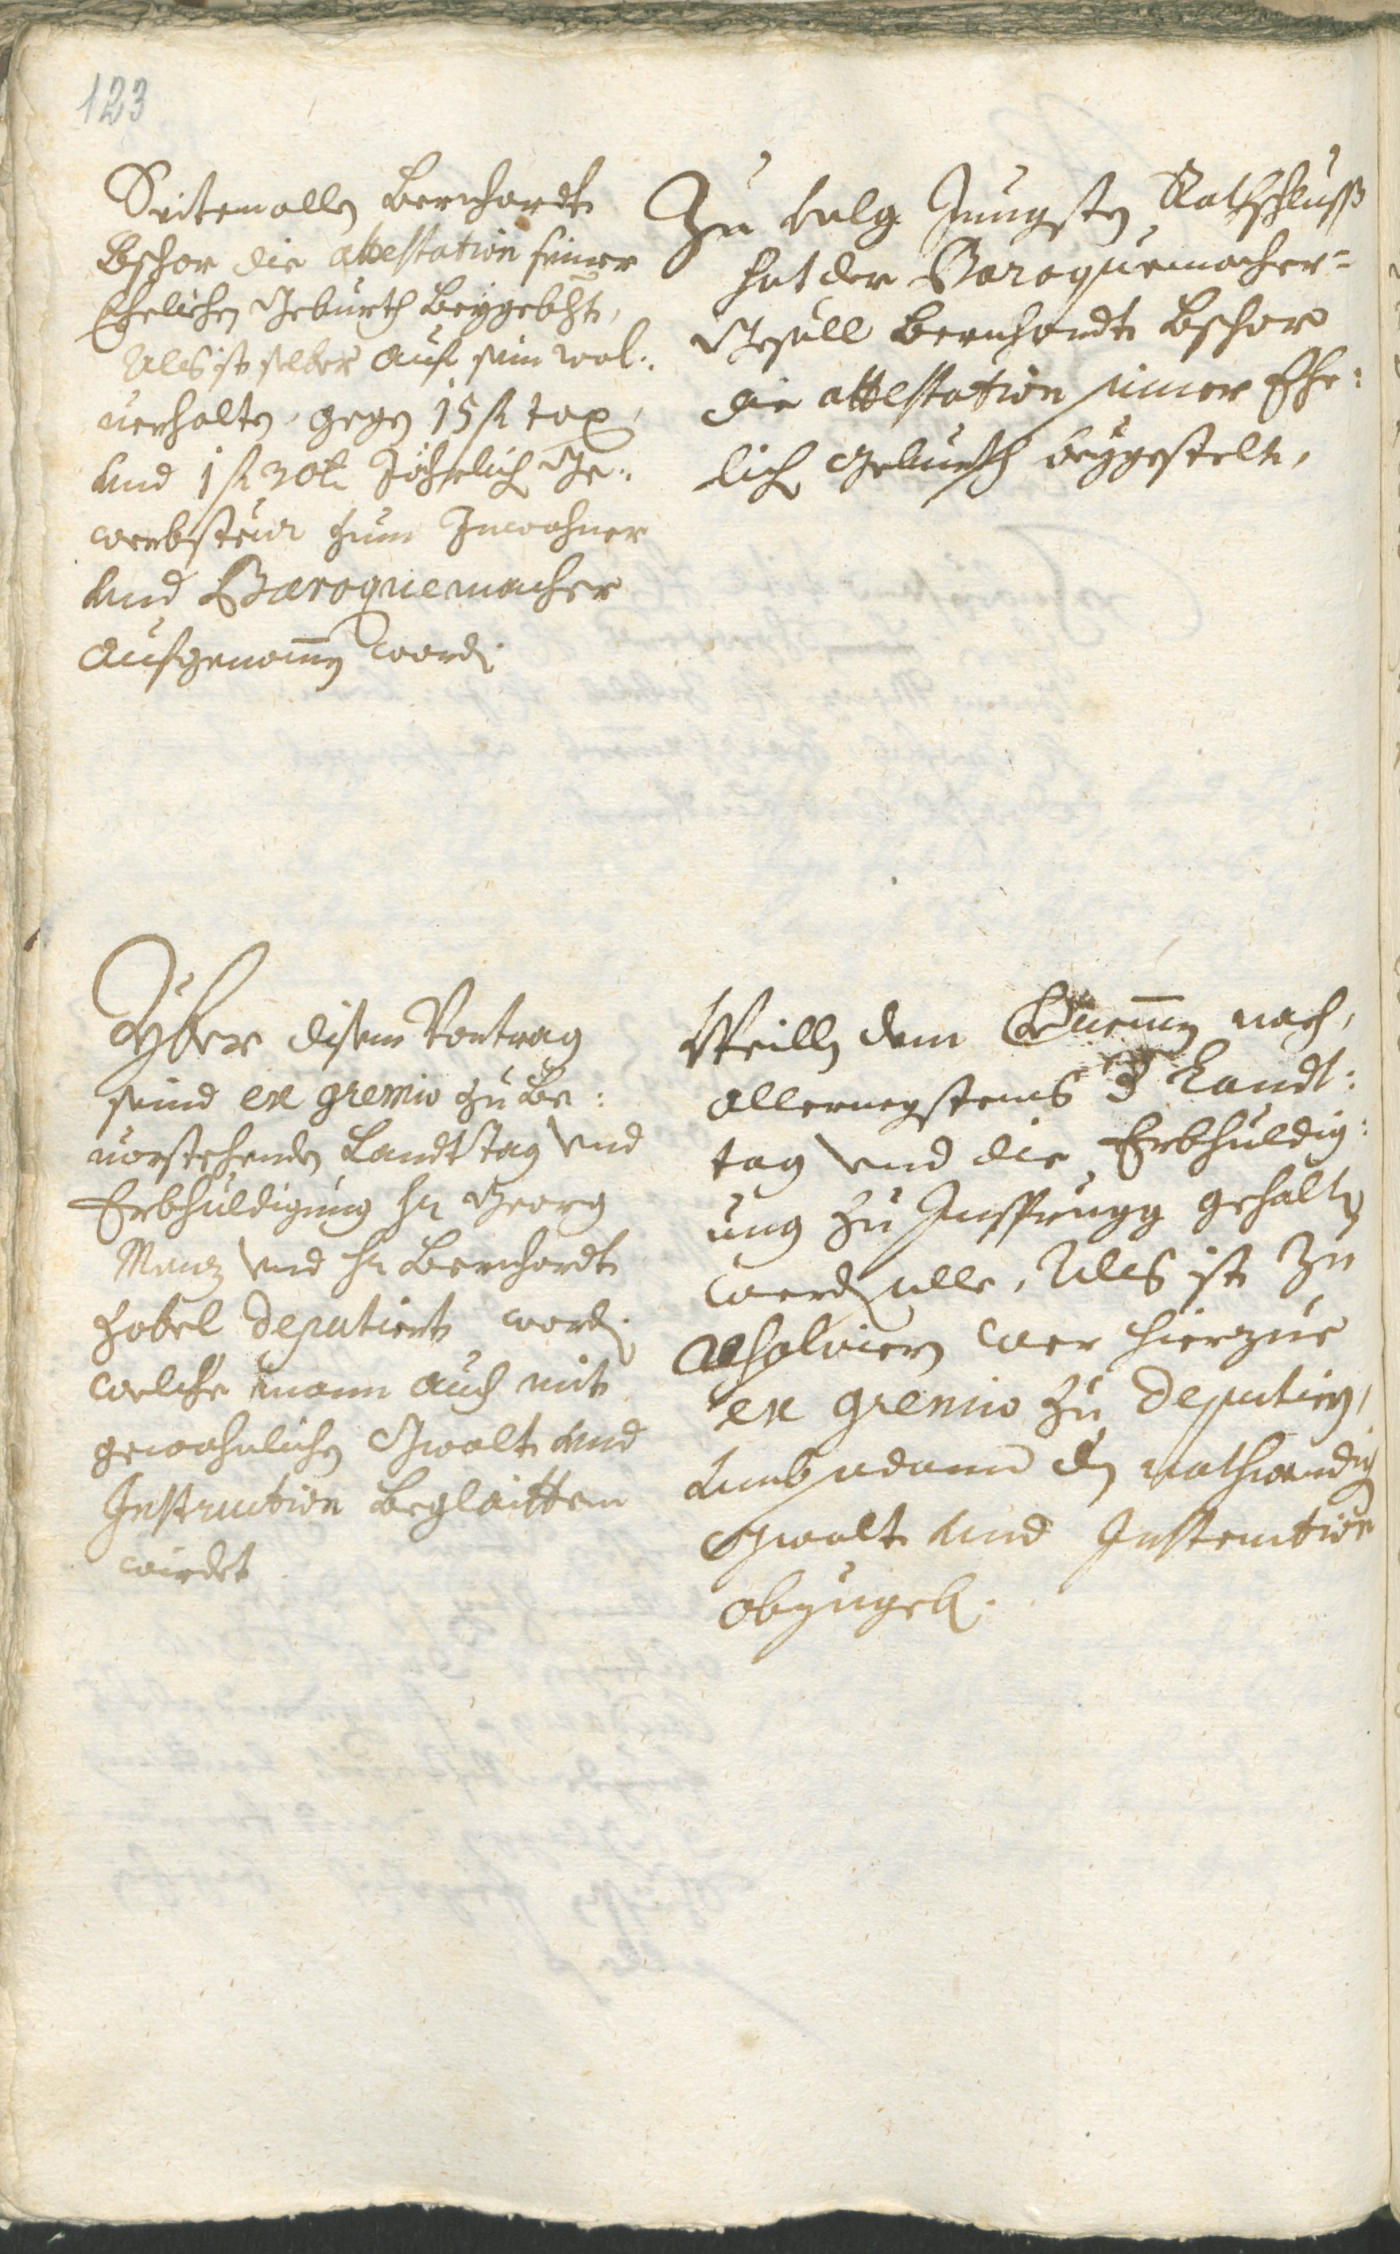 123
Seitemallen Bernhardt
Bschor die attestation seiner
Ehelichen Geburth beygebht,
Als ist selber auf sein wol:
uerhalten, gegen 15 fl tax,
und 1 fl 30 k Jährlich Ge:
werbsteur zum Inwohner
und Baroquemacher
aufgenomen word.
Zu volg Jüngsten Rathschluss
hat der Baroquemacher=
Gesell Bernhardt Bschor
die attestation seiner Ehe:
lich Geburth beygestelt,
Yber disem Vortrag
seind ex gremio zu be:
uorstehenden Landtstag und
Erbhuldigung Hr Georg
Menz und Hr Bernhardt
Hobel deputiert word.
welche mann auch mit
gewohnlichen Gwalt und
Instruction beglaitten
wirdet
Weillen dem nach,
allernegstens d Landt:
tag und die Erbhuldig:
ung zu Insprugg gehalten
werden solle, Als ist zu
resolviern wer hierzue
ex gremio zu deputiern,
umb sodann den nothwendig
Gwalt und Instruction
abzugeb.